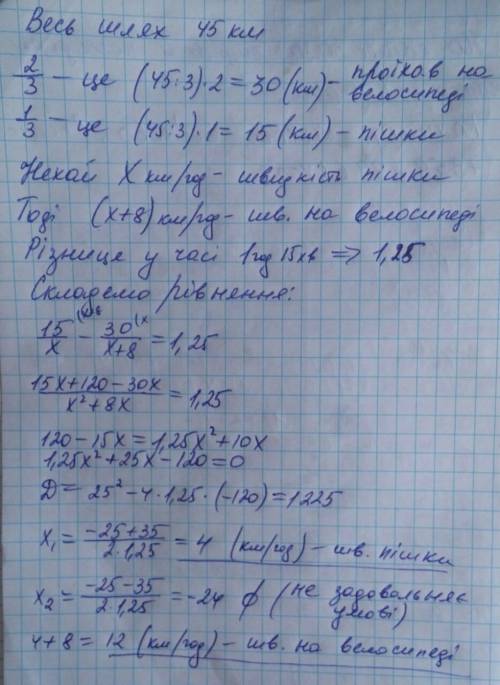 Весь шлях 45 км
2/3 – це (45:3)·2 = 30 (км) – проїхав на велосипеді
1/3 – це (45:3)·1 = 15 (км) – пішки
Нехай X км/год – швидкість пішки
Тоді (x+8) км/год – шв. на велосипеді
Різнице у часі 1 год 15 хв ⇒ 1,25
Складемо рівнення:
15/x - 30/x+8 = 1,25
15x+120-30x/x²+8x = 1,25
120-15x = 1,25x²+10x
1,25x²+25x-120=0
D = 25²-4·1,25·(-120)=1225
x₁ = -25+35/2·1,25 = 4 (км/год) – шв. пішки
x₂ = -25-35/2·1,25 = -24 ∅ (не задовольняє умові)
4+8 = 12 (км/год) – шв. на велосипеді